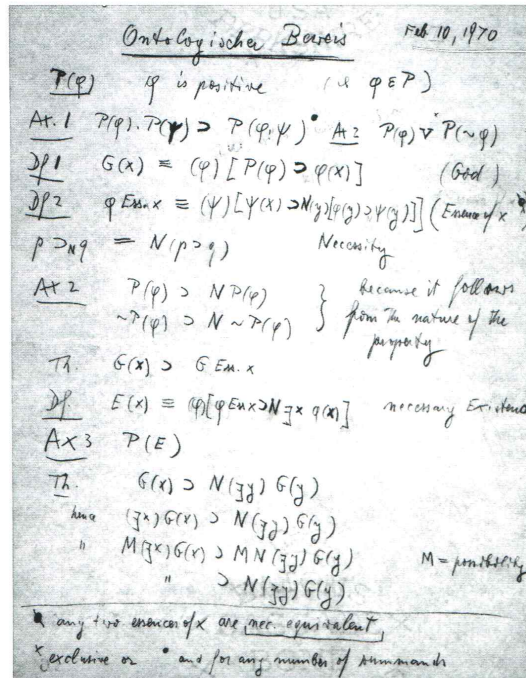 Ontologischer Beweis Feb 10, 1970
P(φ) φ is positive (is φ ∈ P)
Ax. 1 P(φ).P(ψ) ⊃ P(φ.ψ)• Ax 2 P(φ) ∨ˣ P(~φ)
Df 1 G(x) ≡ (φ)[P(φ) ⊃ φ(x)] (God)
Df 2 φ Ess. x ≡ (ψ)[ψ(x) ⊃ N(y)[φ(y) ⊃ ψ(y)]] (Essence of x)
p ⊃ɴ q = N(p ⊃ q) Necessity
Ax 2 P(φ) ⊃ N P(φ) } because it follows
~P(φ) ⊃ N ~P(φ) from the nature of the
property
Th. G(x) ⊃ G Ess. x
Df E(x) ≡ (φ)[φ Ess x ⊃ N ∃x φ(x)] necessary Existenc
Ax 3 P(E)
Th. G(x) ⊃ N(∃y) G(y)
hence (∃x) G(x) ⊃ N(∃y) G(y)
" M(∃x) G(x) ⊃ MN(∃y) G(y) M = possibility
" ⊃ N(∃y) G(y)
any two essences of x are nec. equivalent
x exclusive or • and for any number of summands